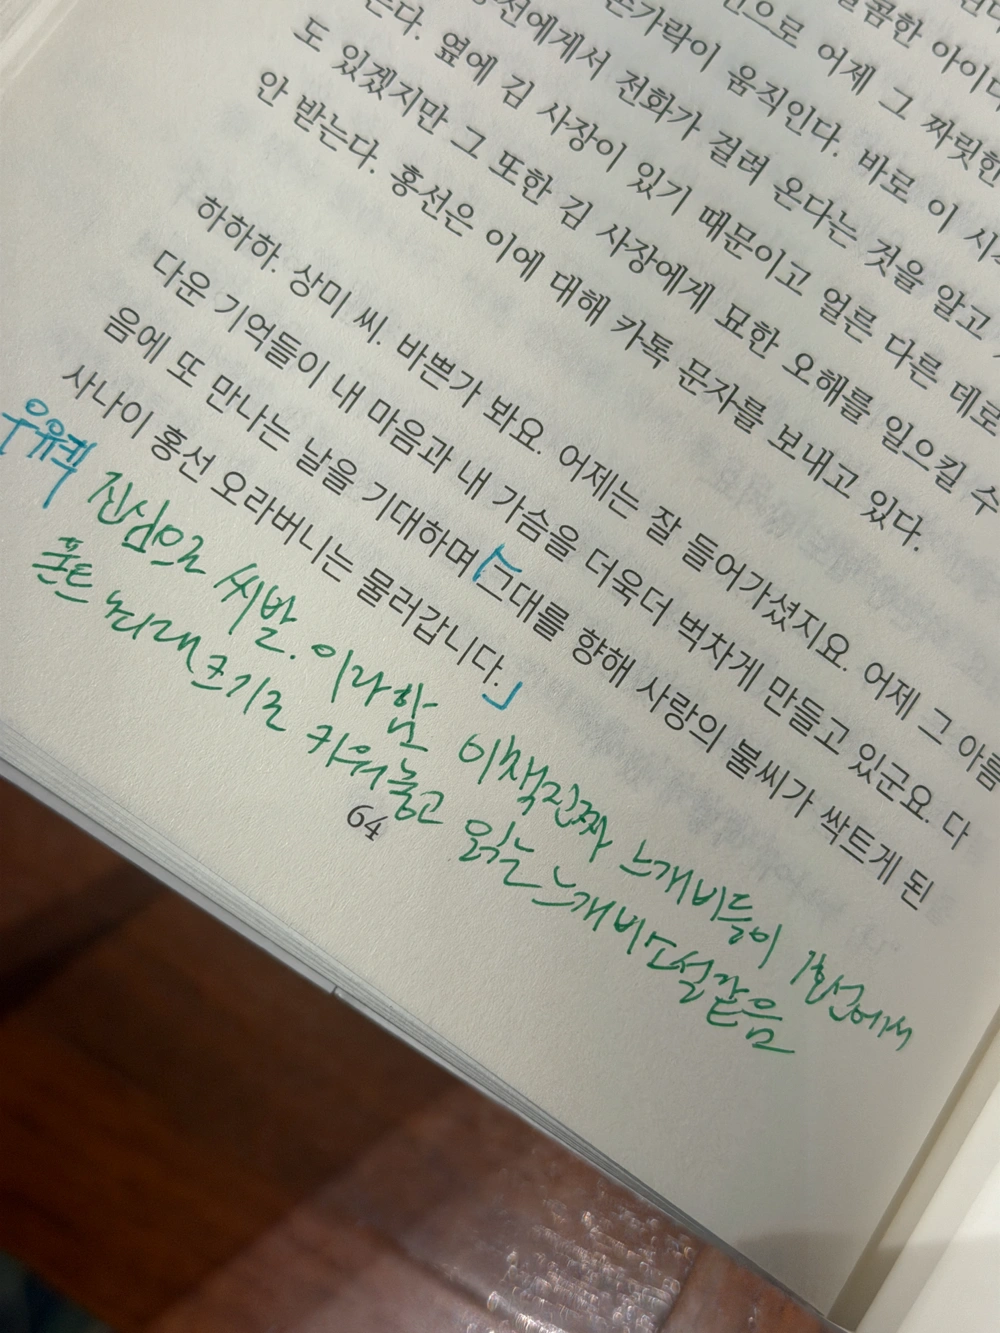 콤한 아이디
손가락이 움직인다. 바로 이 시
전화가 걸려 온다는 것을 알고
른다. 옆에 김 사장이 있기 때문이고 얼른 다른 데로
도 있겠지만 그 또한 김 사장에게 묘한 오해를 일으킬 수
안 받는다. 홍선은 이에 대해 카톡 문자를 보내고 있다.
하하하. 상미 씨. 바쁜가 봐요. 어제는 잘 들어가셨지요. 어제 그 아름
다운 기억들이 내 마음과 내 가슴을 더욱더 벅차게 만들고 있군요. 다
음에 또 만나는 날을 기대하며 「그대를 향해 사랑의 불씨가 싹트게 된
사나이 홍선 오라버니는 물러갑니다.」
우유콱
진심으로 씨발. 이라함 이책진짜 느개비들이 1호선에서
폰트 뇌래크기로 키워놓고 읽는 느개비소설같음
64